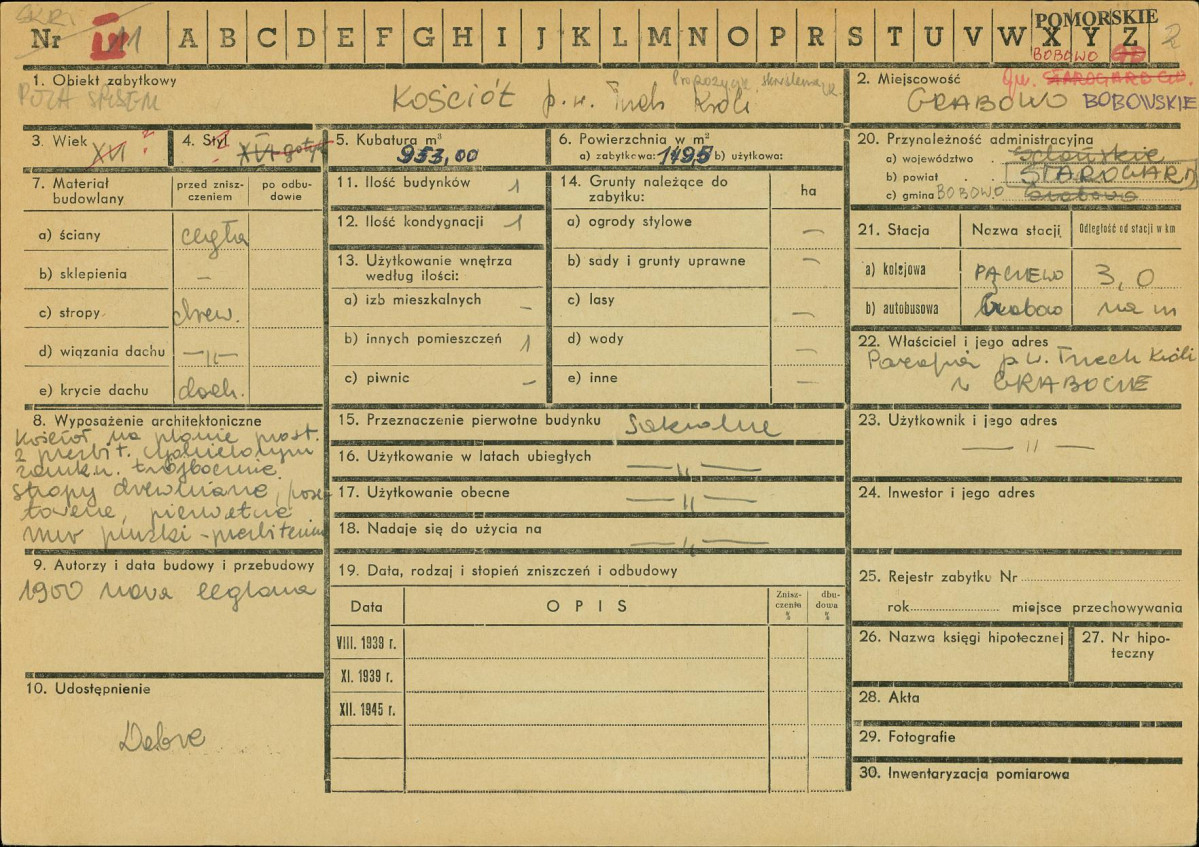 SKRE
Nr III 11 A B C D E F G H I J K L M N O P R S T U V W X Y Z 2
POMORSKIE
BOBOWO
1. Obiekt zabytkowy
POZA SPISEM
Kościół p.w. Trzech Króli
Propozycja skreślenia
2. Miejscowość
gm. STAROGARD GD.
GRABOWO BOBOWSKIE
3. Wiek XVI ?
4. Styl XVI gotyk
5. Kubatura m³
953,00
6. Powierzchnia w m²
a) zabytkowa: 1495 b) użytkowa:
7. Materiał budowlany
przed zniszczeniem
po odbudowie
a) ściany cegła
b) sklepienia –
c) stropy drew.
d) wiązania dachu –"–
e) krycie dachu dach.
8. Wyposażenie architektoniczne
Kościół na planie prost.
z prezbit. wydzielonym
zamkn. trójbocznie.
stropy drewniane,
pierwotne
mur pruski - prezbiterium
9. Autorzy i data budowy i przebudowy
1900 nowa ceglana
10. Udostępnienie
Dobre
11. Ilość budynków 1
12. Ilość kondygnacji 1
13. Użytkowanie wnętrza
według ilości:
a) izb mieszkalnych –
b) innych pomieszczeń 1
c) piwnic –
14. Grunty należące do
zabytku:
ha
a) ogrody stylowe –
b) sady i grunty uprawne –
c) lasy –
d) wody –
e) inne –
15. Przeznaczenie pierwotne budynku Sakralne
16. Użytkowanie w latach ubiegłych –"–
17. Użytkowanie obecne –"–
18. Nadaje się do użycia na –"–
19. Data, rodzaj i stopień zniszczeń i odbudowy
Data
OPIS
Znisz-
czenia
%
dbu-
dowa
%
VIII. 1939 r.
XI. 1939 r.
XII. 1945 r.
20. Przynależność administracyjna
a) województwo Gdańskie
b) powiat STAROGARD
c) gmina BOBOWO Grabowo
21. Stacja
Nazwa stacji
Odległość od stacji w km
a) kolejowa PĄCZEWO 3,0
b) autobusowa Grabowo na m
22. Właściciel i jego adres
Parafia p.w. Trzech Króli
w GRABOWIE
23. Użytkownik i jego adres
–"–
24. Inwestor i jego adres
25. Rejestr zabytku Nr
rok miejsce przechowywania
26. Nazwa księgi hipotecznej
27. Nr hipo-
teczny
28. Akta
29. Fotografie
30. Inwentaryzacja pomiarowa